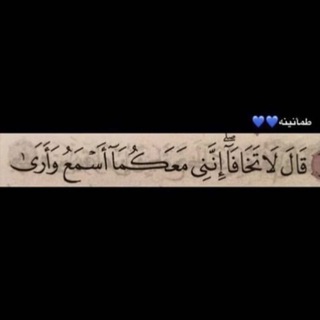 طمانينه💙💙
قَالَ لَا تَخَافَآ ۖ إِنَّنِى مَعَكُمَآ أَسْمَعُ وَأَرَىٰ